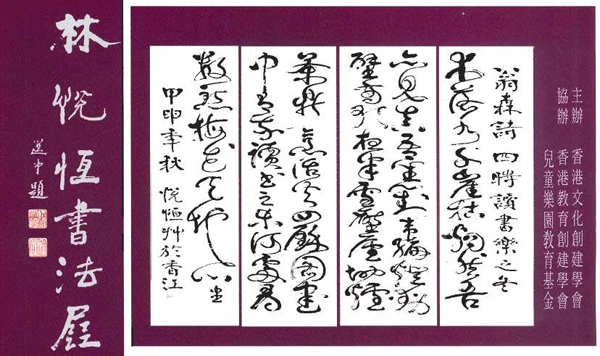 林悅恆書法展
主辦 香港文化創建學會
協辦 香港教育創建學會
兒童樂園教育基金
翁森詩 四時讀書樂之冬
木落水盡千崖枯迥然吾
亦見真吾坐對韋編燈動
壁高歌夜半雪壓廬地爐
茶鼎烹活火四壁圖書
中有我讀書之樂何處尋
數點梅花天地心
甲申年秋 悅恆艸於香江